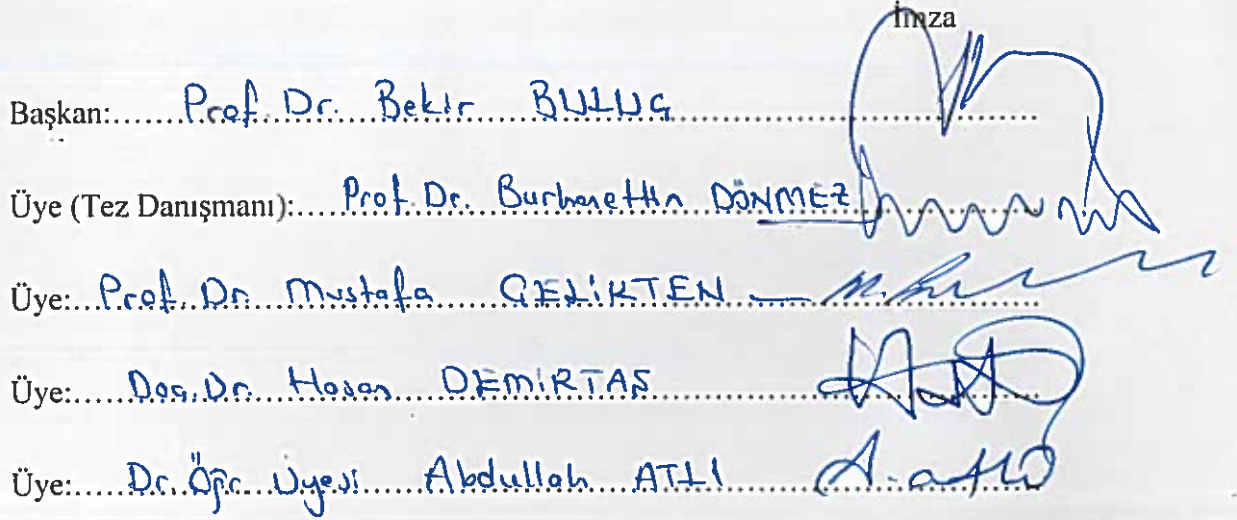 İmza
Başkan:.......Prof. Dr. Bekir BULUÇ
Üye (Tez Danışmanı):.....Prof. Dr. Burhanettin DÖNMEZ
Üye:...Prof. Dr. Mustafa ÇELİKTEN
Üye:.....Doç. Dr. Hasan DEMİRTAŞ
Üye:.....Dr. Öğr. Üyesi Abdullah ATLI A. atlı